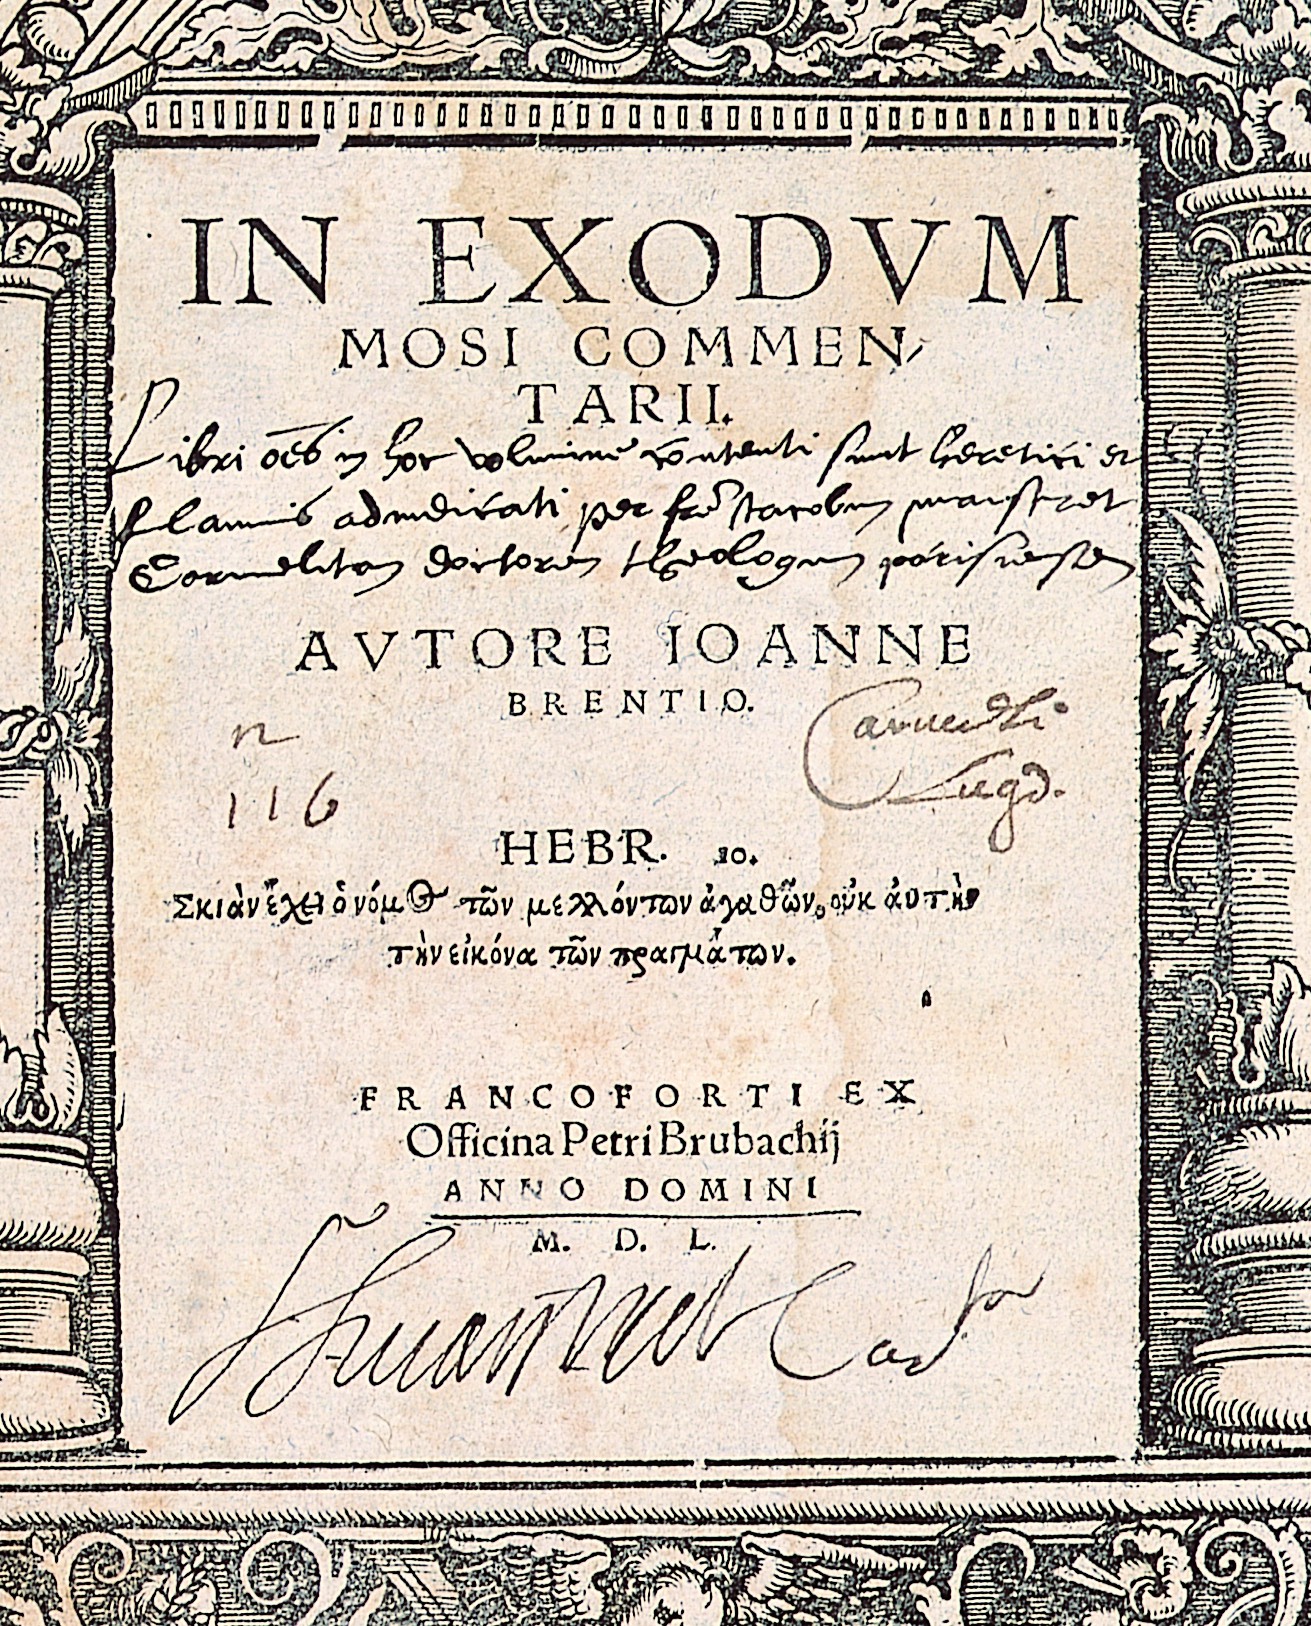 IN EXODVM
MOSI COMMEN-
TARII.
Libri oēs in hoc volumine contenti sunt heretici et
flammis adiudicati per frēm Iacobum maistret
Carmelitam doctorem theologum parisiensem
AVTORE IOANNE
BRENTIO.
n
116
Lugd.
HEBR. 10.
Σκιὰν ἔχει ὁ νόμος τῶν μελλόντων ἀγαθῶν, οὐκ ἀυτὴν
τὴν εἰκόνα τῶν πραγμάτων.
FRANCOFORTI EX
Officina Petri Brubachij
ANNO DOMINI
M. D. L.